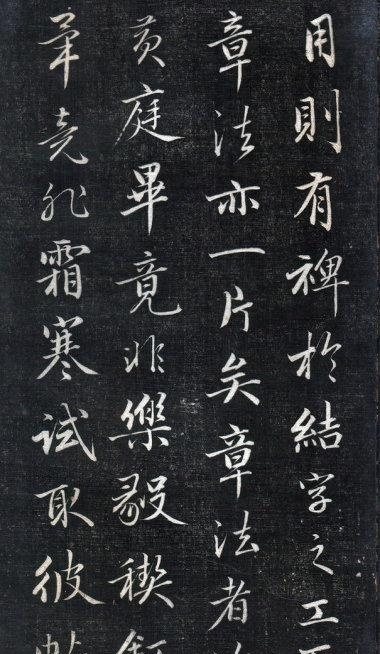 用則有裨於結字之工
章法亦一片矣章法者
黄庭畢竟非樂毅稧
畢竟非霜寒試取彼